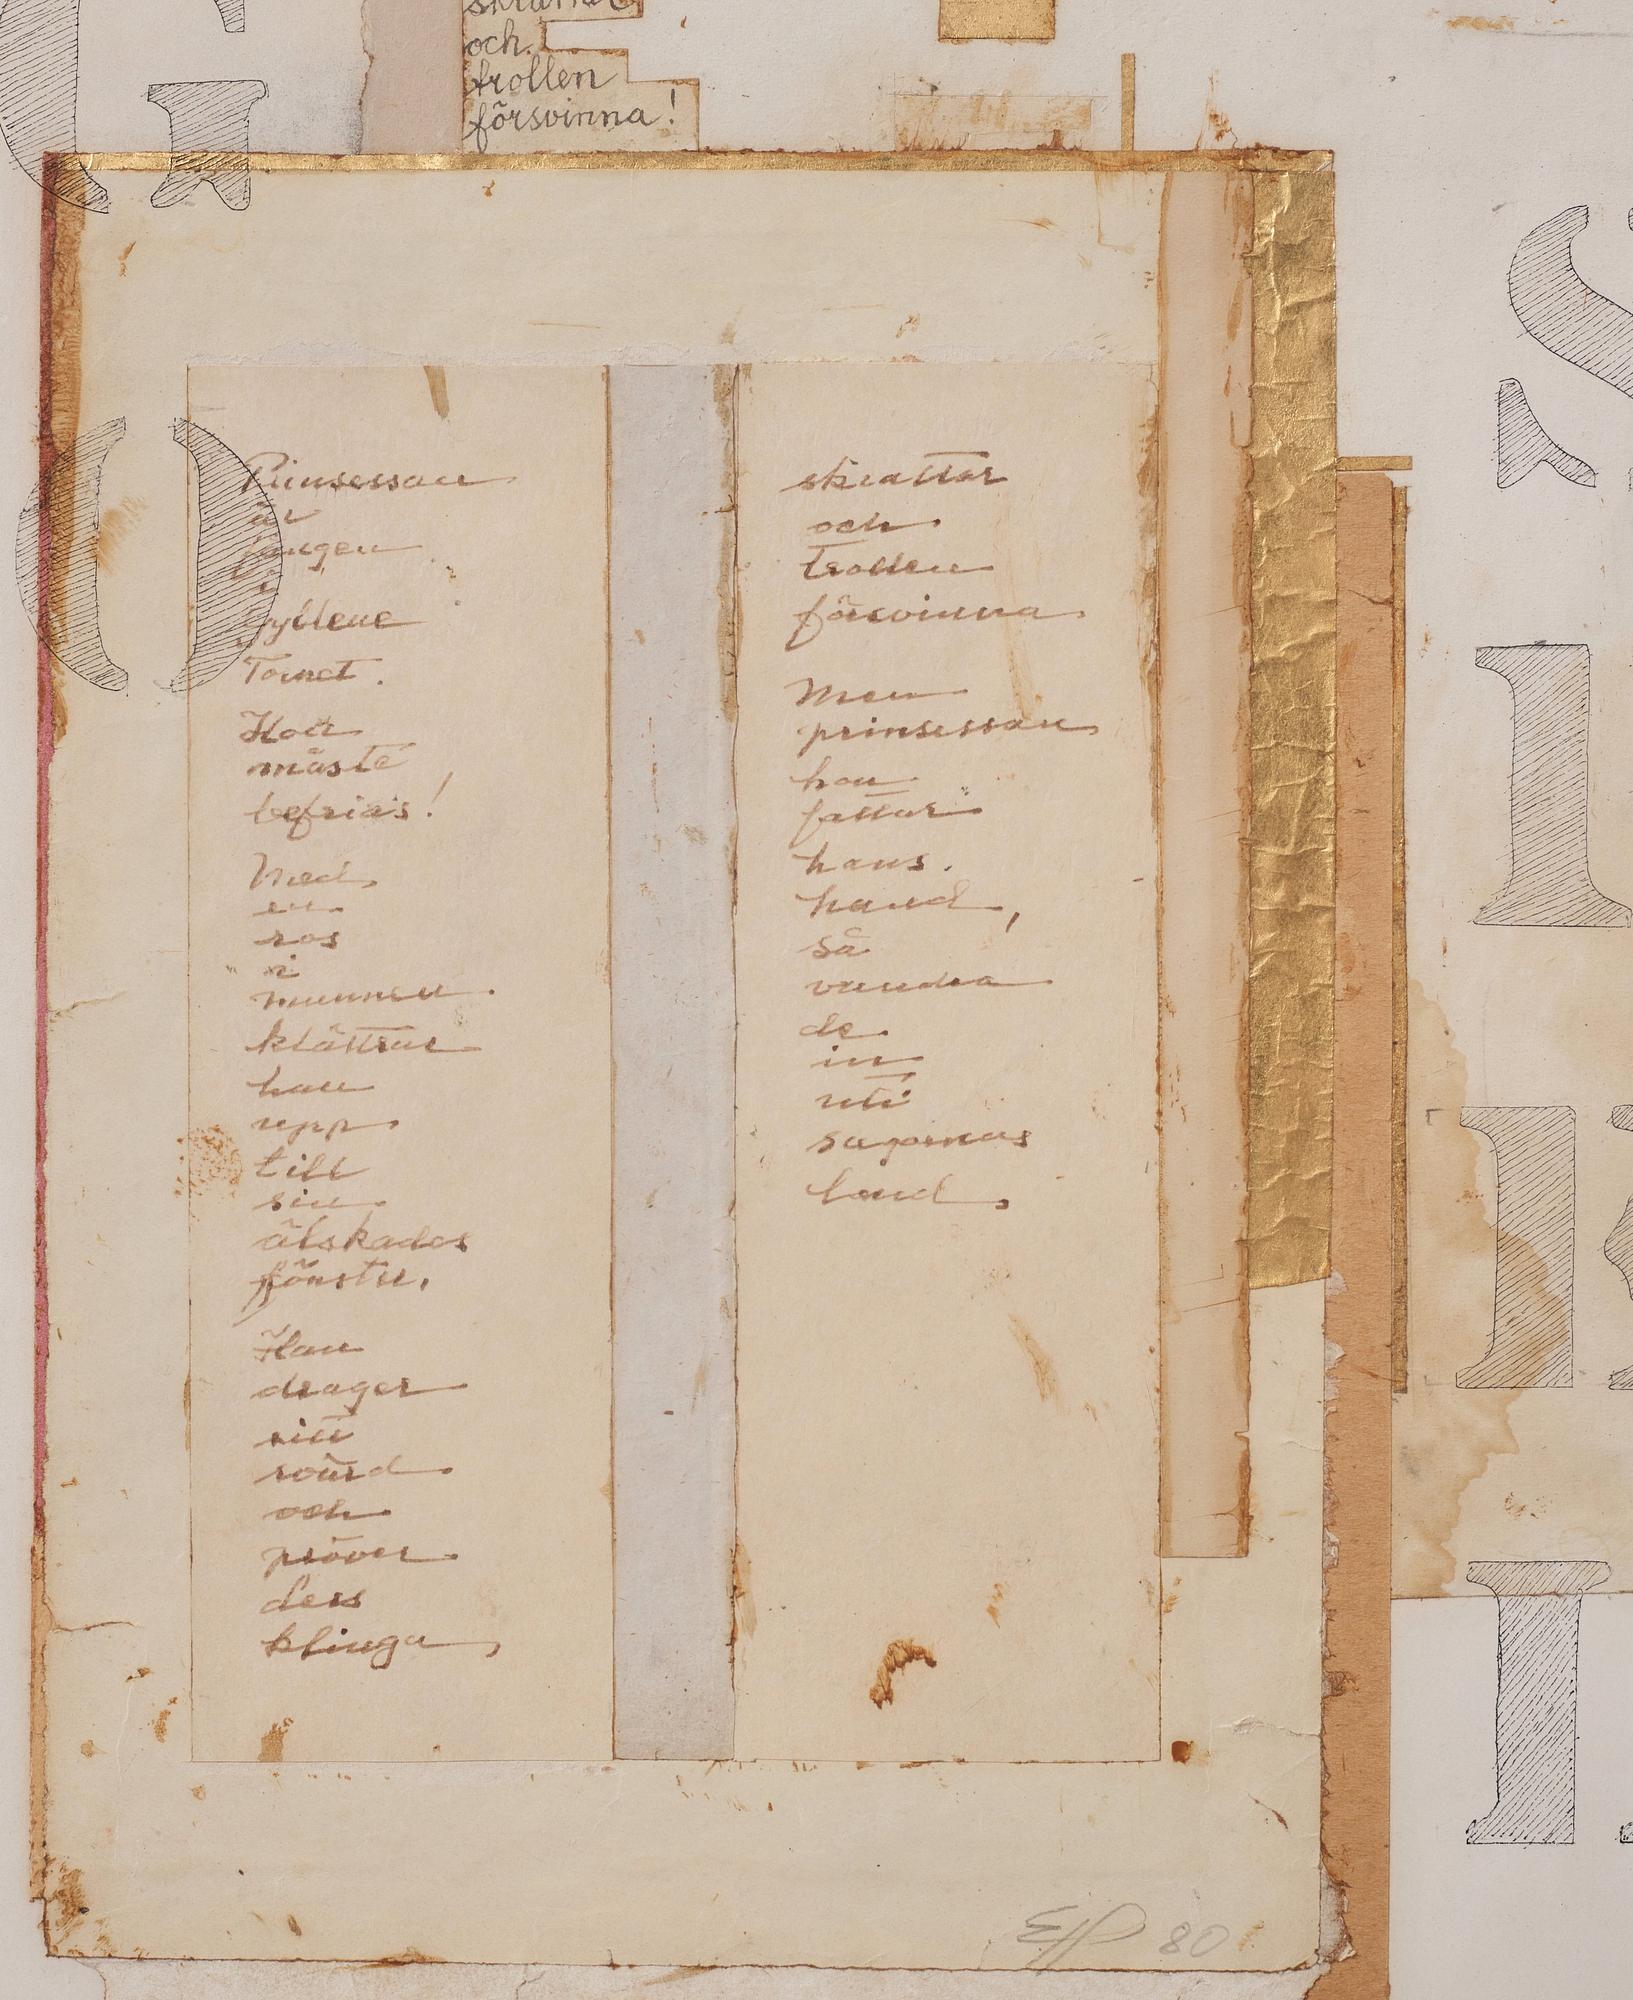 skrattar
och
trollen
försvinna!
Prinsessan
är
fången
i
Gyllene
Tornet.
Hon
måste
befrias!
Med
en
ros
i
munnen
klättrar
han
upp
till
sin
älskades
fönster.
Han
drager
sitt
svärd
och
prövar
dess
klinga,
skrattar
och
trollen
försvinna
Men
prinsessan
hon
fattar
hans
hand,
så
vandra
de
in
uti
sagornas
land.
80